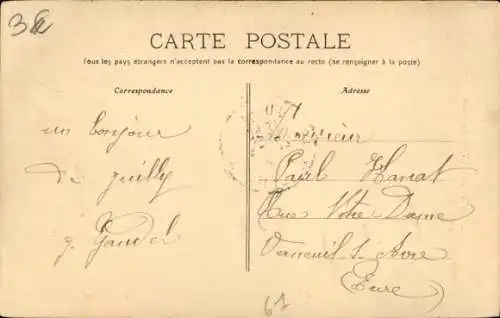 CARTE POSTALE
Tous les pays étrangers n'acceptent pas la correspondance au recto (se renseigner à la poste)
Correspondance
Adresse
un bonjour
de Juilly
g. Gaudel
Monsieur
Paul Hanat
Rue Notre Dame
Verneuil s. Avre
(Eure)